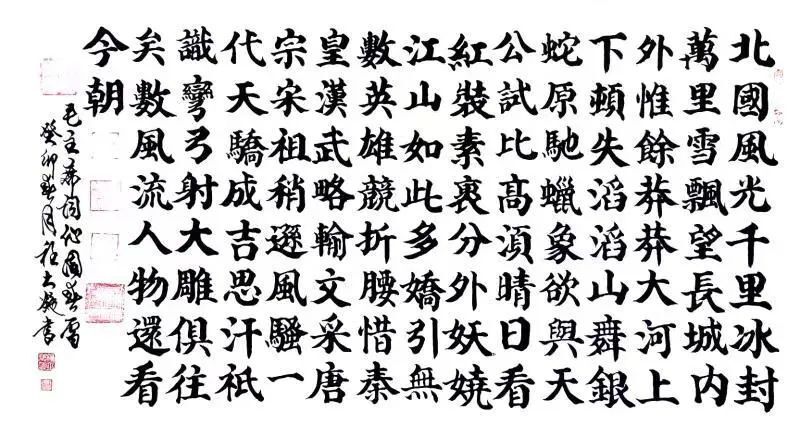 北國風光千里冰封
萬里雪飄望長城内
外惟餘莽莽大河上
下頓失滔滔山舞銀
蛇原馳蠟象欲與天
公試比高湏晴日看
紅裝素裹分外妖嬈
江山如此多嬌引無
數英雄競折腰惜秦
皇漢武略輸文采唐
宗宋祖稍遜風騷一
代天驕成吉思汗祇
識彎弓射大雕俱往
矣數風流人物還看
今朝
毛主席詞沁園春雪
癸卯春月程書